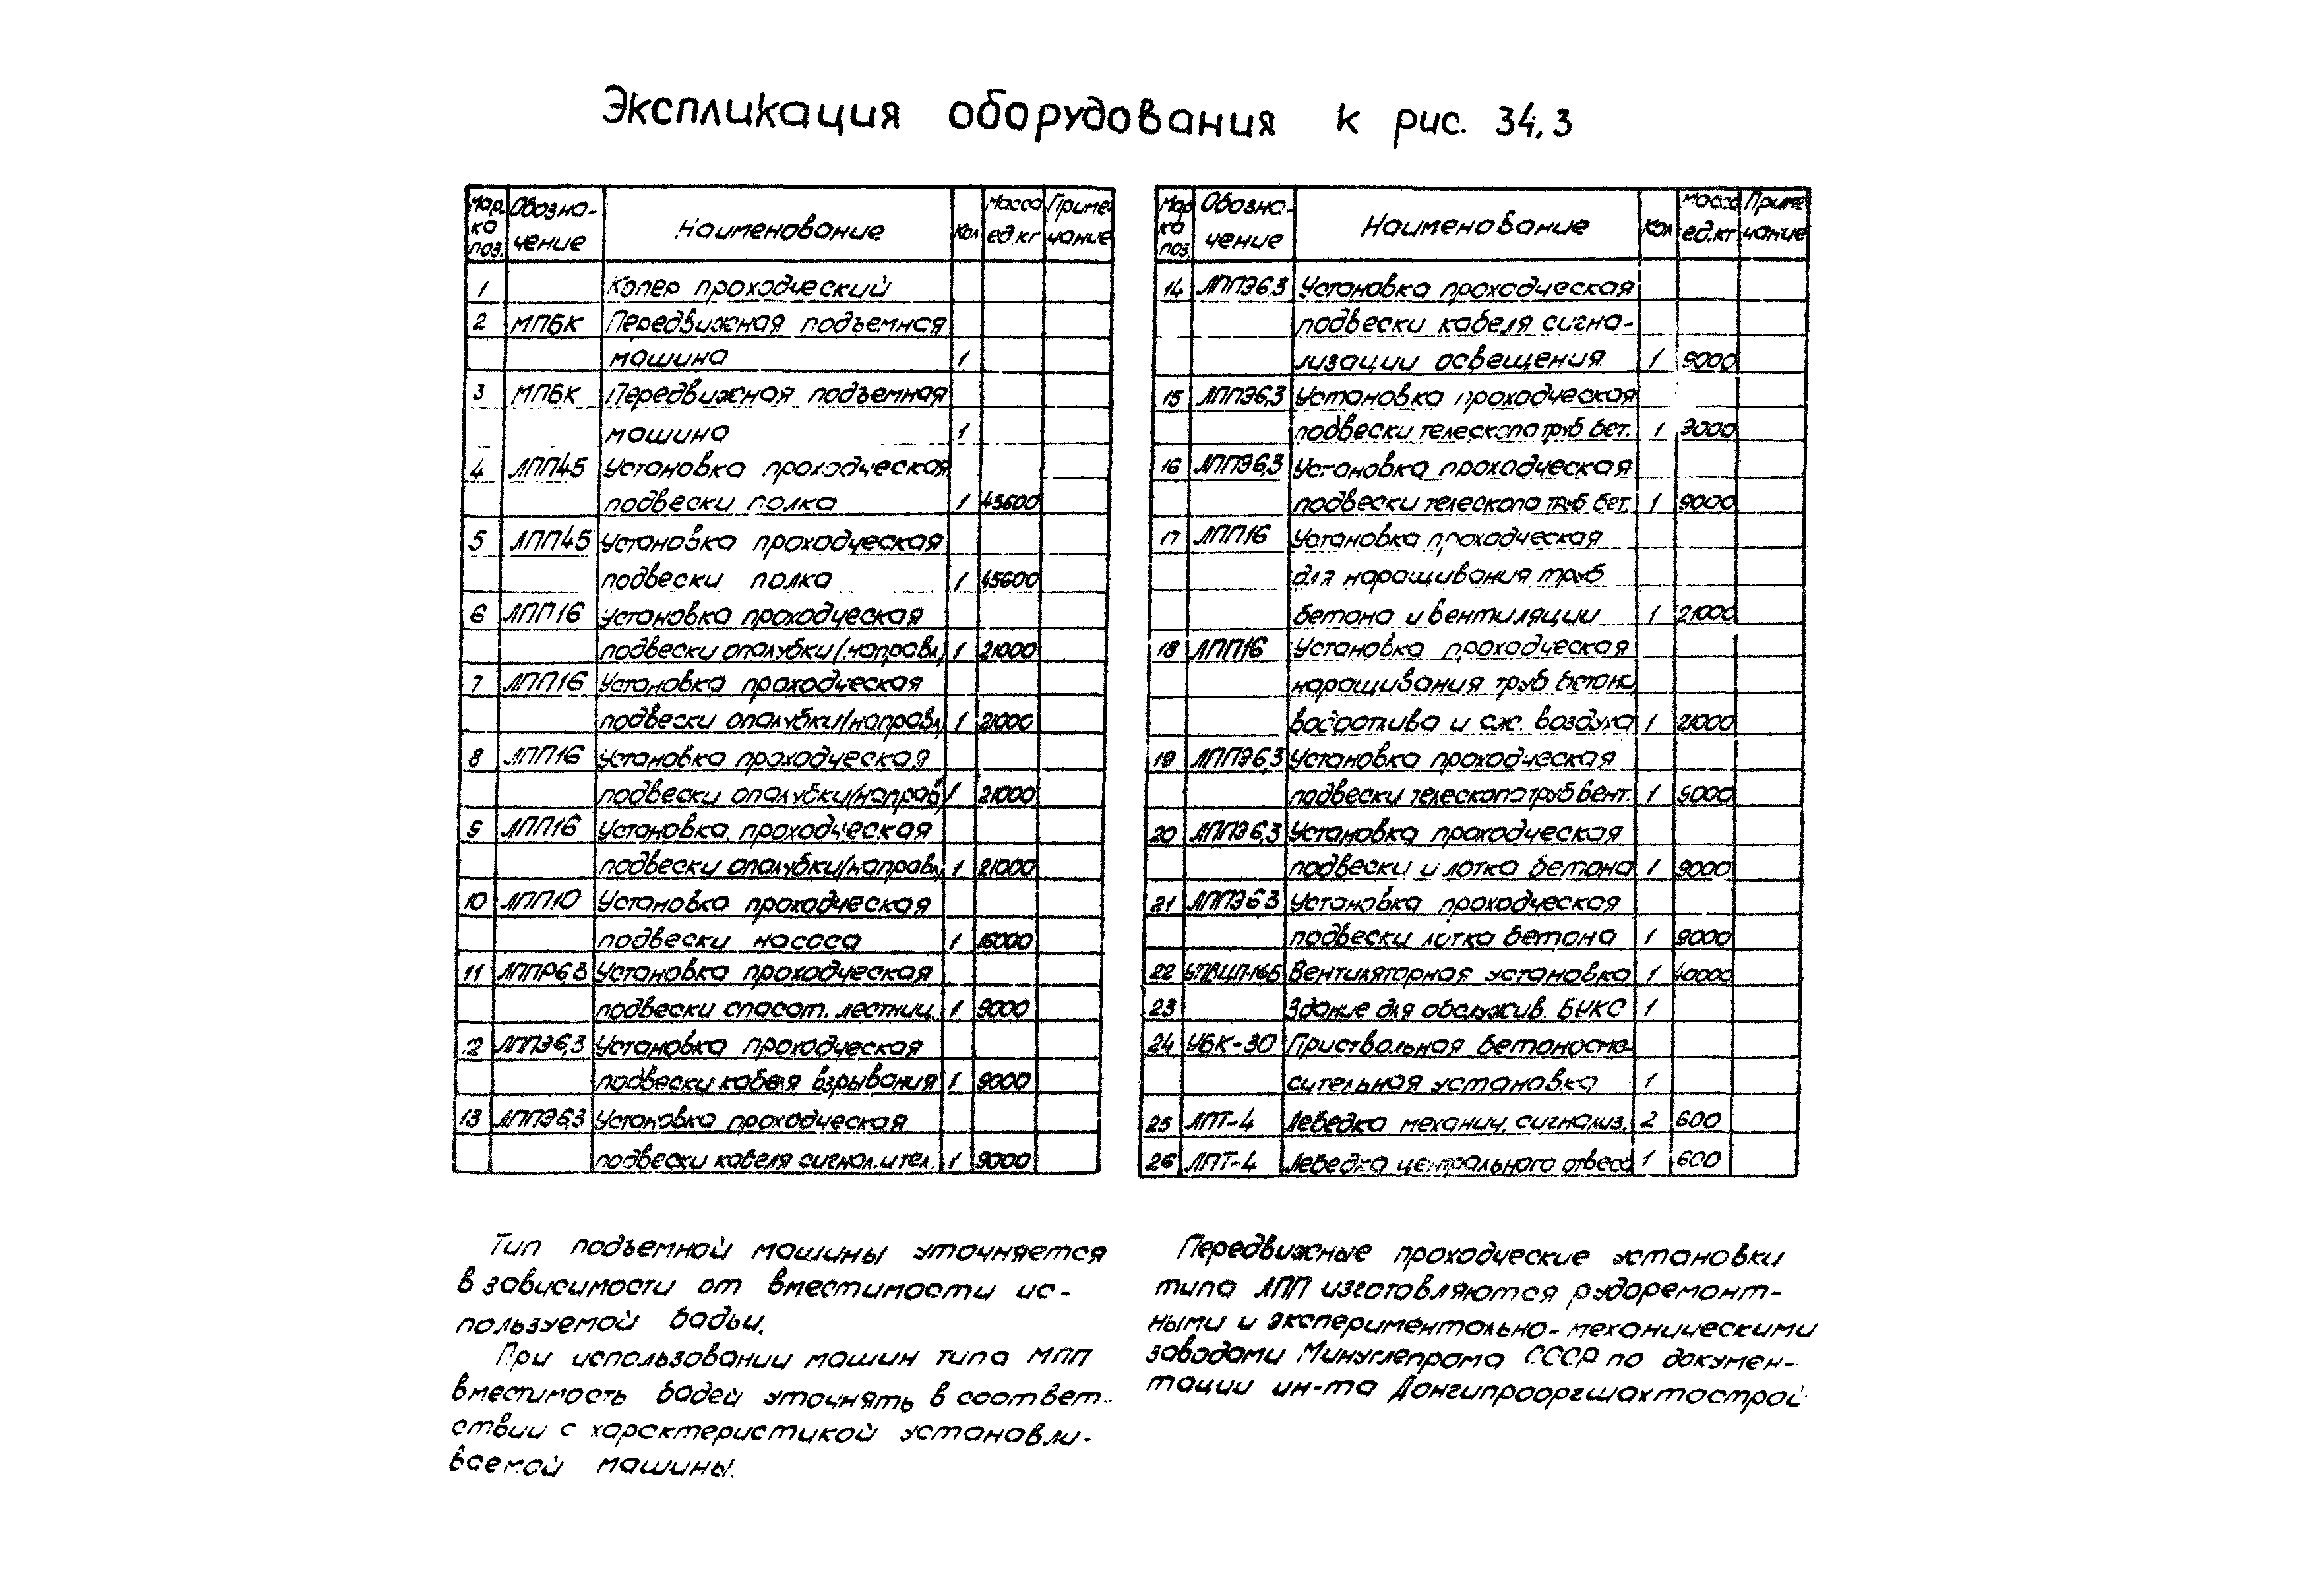 Экспликация оборудования к рис. 34.3
Мар- Обозна- Наименование Кол Масса Приме-
ка поз. чение ед.кг чание
1 Копер проходческий
2 МПБК Передвижная подъемная
машина 1
3 МПБК Передвижная подъемная
машина 1
4 ЛПП45 Установка проходческая
подвески полка 1 45600
5 ЛПП45 Установка проходческая
подвески полка 1 45600
6 ЛПП16 Установка проходческая
подвески опалубки/направл/ 1 21000
7 ЛПП16 Установка проходческая
подвески опалубки/направл/ 1 21000
8 ЛПП16 Установка проходческая
подвески опалубки/направ/ 1 21000
9 ЛПП16 Установка проходческая
подвески опалубки/направл/ 1 21000
10 ЛПП10 Установка проходческая
подвески насоса 1 16000
11 ЛППР6,3 Установка проходческая
подвески спасат. лестниц. 1 9000
12 ЛППЭ6,3 Установка проходческая
подвески кабеля взрывания 1 9000
13 ЛППЭ6,3 Установка проходческая
подвески кабеля сигнал.и тел. 1 9000
Мар- Обозна- Наименование Кол Масса Приме-
ка поз. чение ед.кг чание
14 ЛППЭ6,3 Установка проходческая
подвески кабеля сигна-
лизации освещения 1 9000
15 ЛППЭ6,3 Установка проходческая
подвески телескопа труб бет. 1 9000
16 ЛППЭ6,3 Установка проходческая
подвески телескопа труб бет. 1 9000
17 ЛПП16 Установка проходческая
для наращивания труб
бетона и вентиляции 1 21000
18 ЛПП16 Установка проходческая
наращивания труб бетон,
водоотлива и сж. воздуха 1 21000
19 ЛППЭ6,3 Установка проходческая
подвески телескопа труб вент. 1 9000
20 ЛППЭ6,3 Установка проходческая
подвески и лотка бетона 1 9000
21 ЛППЭ6,3 Установка проходческая
подвески лотка бетона 1 9000
22 Вентиляторная установка 1 40000
23 Здание для обслужив. БУКС 1
24 УБК-30 Приствольная бетоносме-
сительная установка 1
25 ЛПТ-4 Лебедка механич. сигнализ. 2 600
26 ЛПТ-4 Лебедка центрального отвеса 1 600
Тип подъемной машины уточняется
в зависимости от вместимости ис-
пользуемой бадьи.
При использовании машин типа МПП
вместимость бадей уточнять в соответ-
ствии с характеристикой устанавли-
ваемой машины.
Передвижные проходческие установки
типа ЛПП изготовляются рудоремонт-
ными и экспериментально-механическими
заводами Минуглепрома СССР по докумен-
тации ин-та Донгипрооргшахтострой